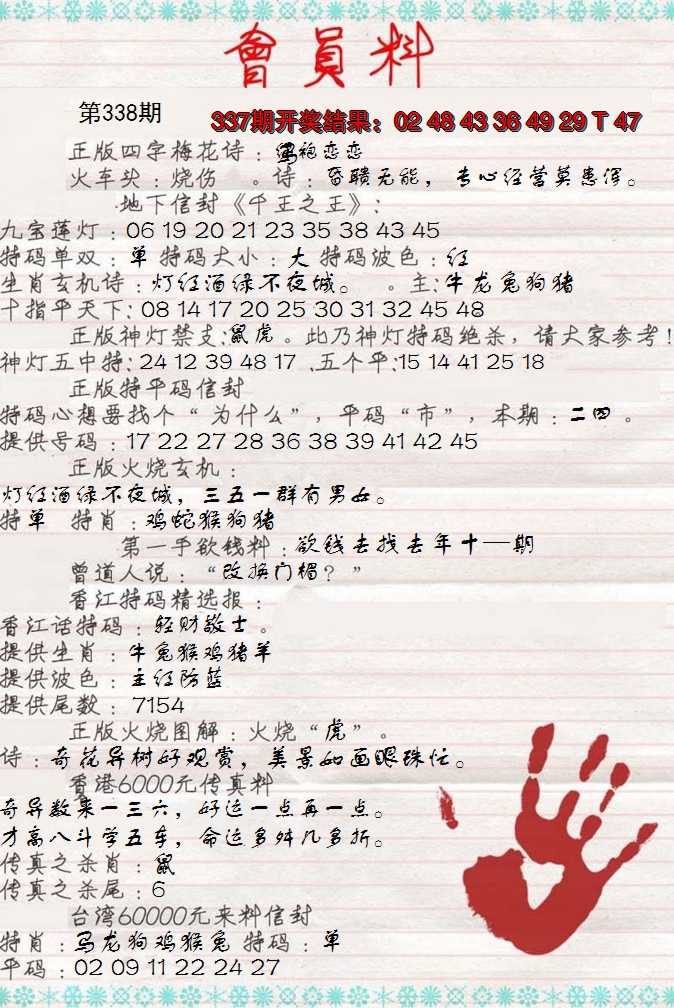 會員料
第338期
337期开奖结果：02 48 43 36 49 29 T 47
正版四字梅花诗：绨袍恋恋
火车头：烧伤 。诗：昏聩无能，专心经营莫患浑。
地下信封《千王之王》：
九宝莲灯：06 19 20 21 23 35 38 43 45
特码单双：单 特码大小：大 特码波色：红
生肖玄机诗：灯红酒绿不夜城。 。主：牛龙兔狗猪
十指平天下：08 14 17 20 25 30 31 32 45 48
正版神灯禁支：鼠虎。此乃神灯特码绝杀，请大家参考！
神灯五中特：24 12 39 48 17 .五个平：15 14 41 25 18
正版特平码信封
特码心想要找个“为什么”，平码“市”，本期：二四。
提供号码：17 22 27 28 36 38 39 41 42 45
正版火烧玄机：
灯红酒绿不夜城，三五一群有男女。
特单 特肖：鸡蛇猴狗猪
第一手欲钱料：欲钱去找去年十一期
曾道人说：“改换门楣？”
香江特码精选报：
香江话特码：轻财敬士。
提供生肖：牛兔猴鸡猪羊
提供波色：主红防蓝
提供尾数：7154
正版火烧图解：火烧“虎”。
诗：奇花异树好观赏，美景如画眼珠忙。
香港6000元传真料
奇异数来一三六，好运一点再一点。
才高八斗学五车，命运多舛几多折。
传真之杀肖：鼠
传真之杀尾：6
台湾60000元来料信封
特肖：马龙狗鸡猴兔 特码：单
平码：02 09 11 22 24 27